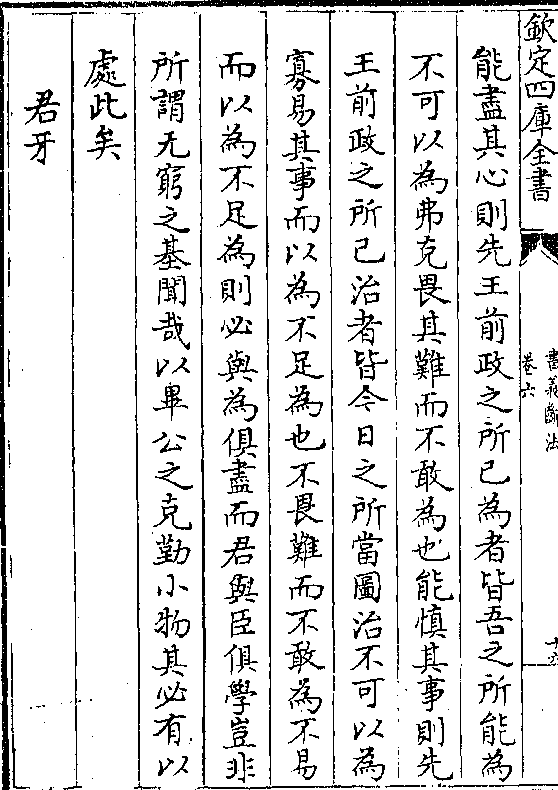 欽定四庫全書
書義斷法
卷六
十六
能盡其心則先王前政之所已為者皆吾之所能為
不可以為弗克畏其難而不敢為也能慎其事則先
王前政之所已治者皆今日之所當圖治不可以為
寡易其事而以為不足為也不畏難而不敢為不易
而以為不足為則必與為俱盡而君與臣俱學豈非
所謂无窮之基聞哉以畢公之克勤小物其必有以
處此矣
君牙